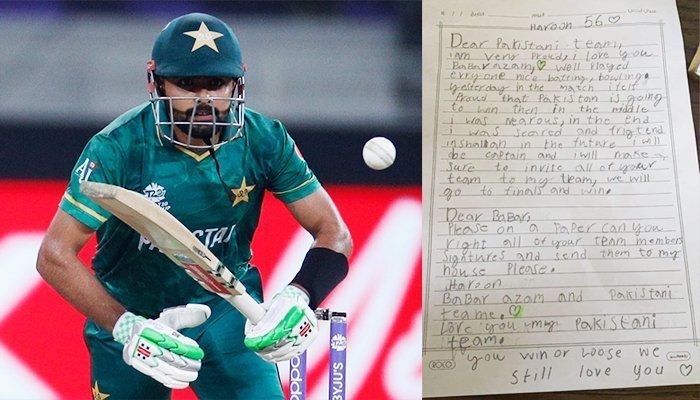 PAKISTAN
BYJU'S
HAROON 56
Dear Pakistani team,
i am very Proud, i love you
BaBar azam, well Played
every one nice batting, bowling.
yesterday in the match i felt
Proud that Pakistan is going
to win then in the middle
i was nearous, in the end
i was scared and frigtend
inshallah in the future i will
be captain and i will make
sure to invite all of your
team to my team, we will
go to finals and win.
Dear BaBar,
Please on a Paper can you
right all of your team members
signtures and send them to my
house Please.
Haroon
BaBar azam and Pakistani
teame.
Love you my Pakistani
team.
you win or loose we
still love you